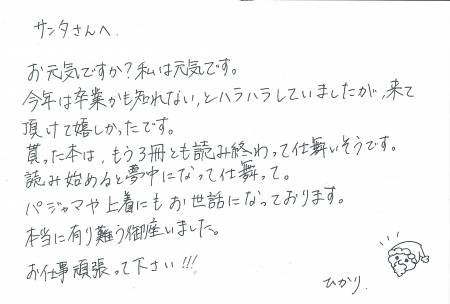 サンタさんへ.
お元気ですか?私は元気です。
今年は卒業かも知れない、とハラハラしていましたが、来て
頂けて嬉しかったです。
貰った本は、もう3冊とも読み終わって仕舞いそうです。
読み始めると夢中になって仕舞って。
パジャマや上着にもお世話になっております。
本当に有り難う御座いました。
お仕事頑張って下さい!!!
ひかり.